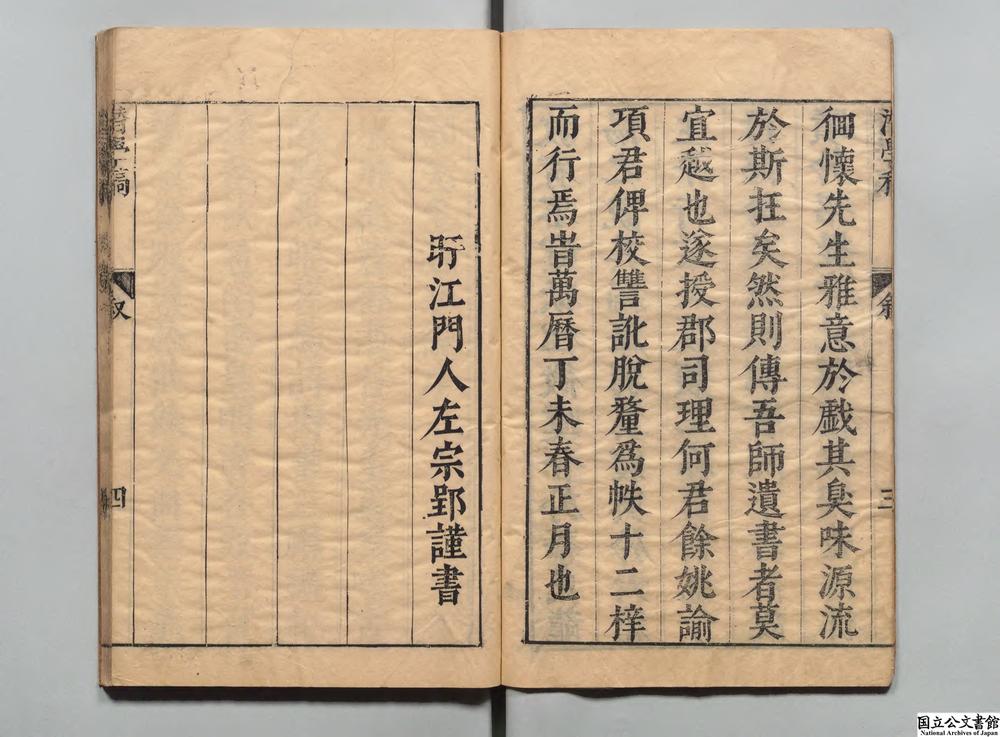 徊懷先生雅意於戲其臭味源流
於斯在矣然則傳吾師遺書者莫
宜越也遂授郡司理何君餘姚諭
項君俾校讐訛脫釐爲帙十二梓
而行焉旹萬曆丁未春正月也
敘
三
盱江門人左宗郢謹書
叙
四
国立公文書館
National Archives of Japan